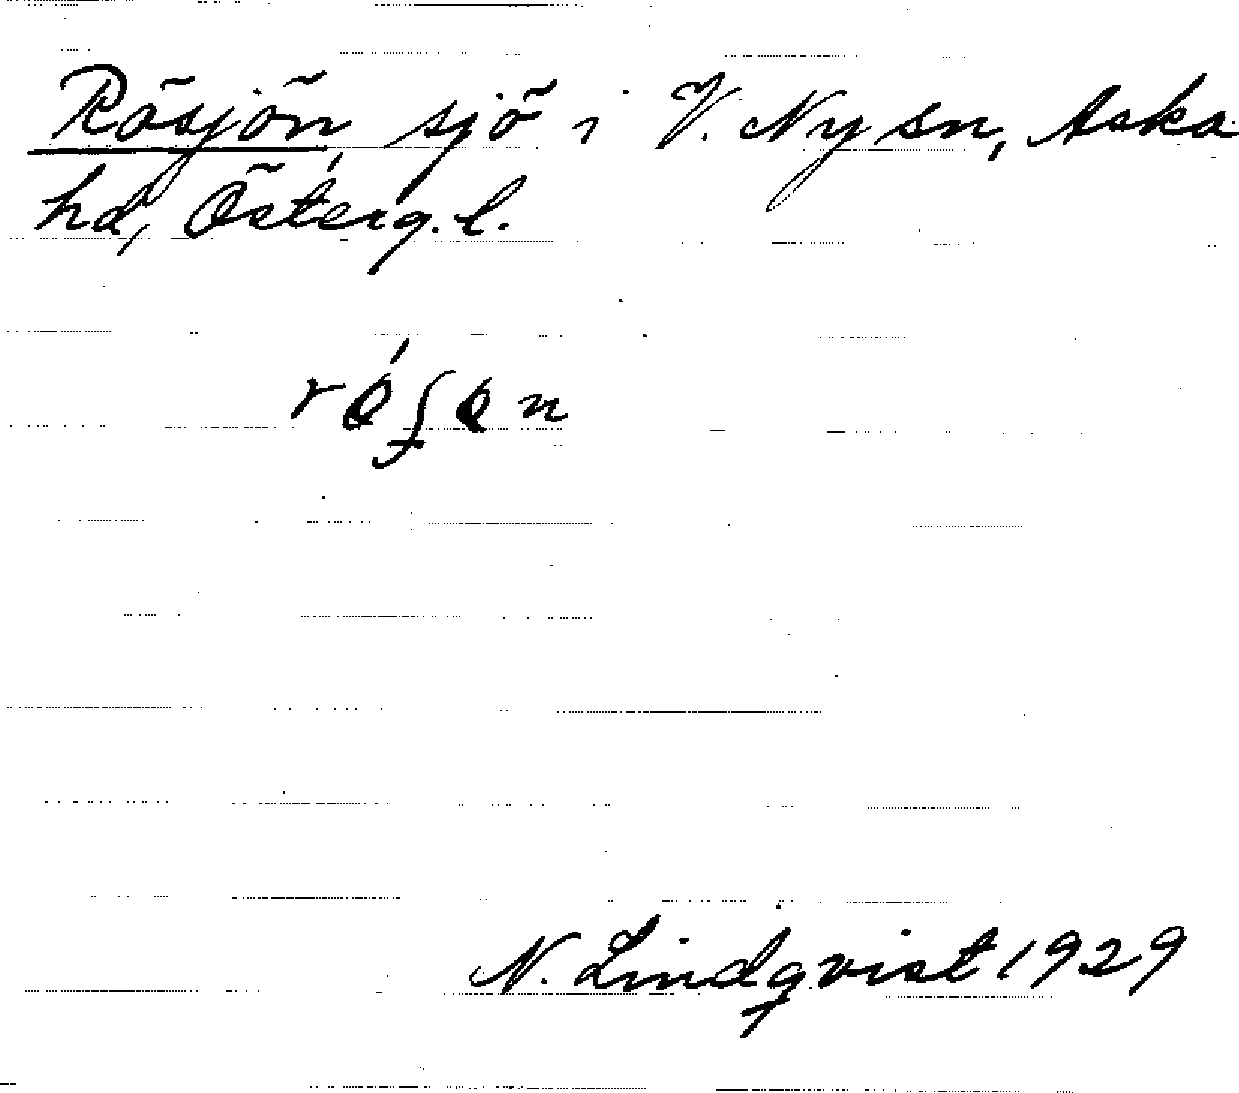 Rösjön sjö i V. Ny sn, Aska
hd, Österg. l.
N. Lindqvist 1929